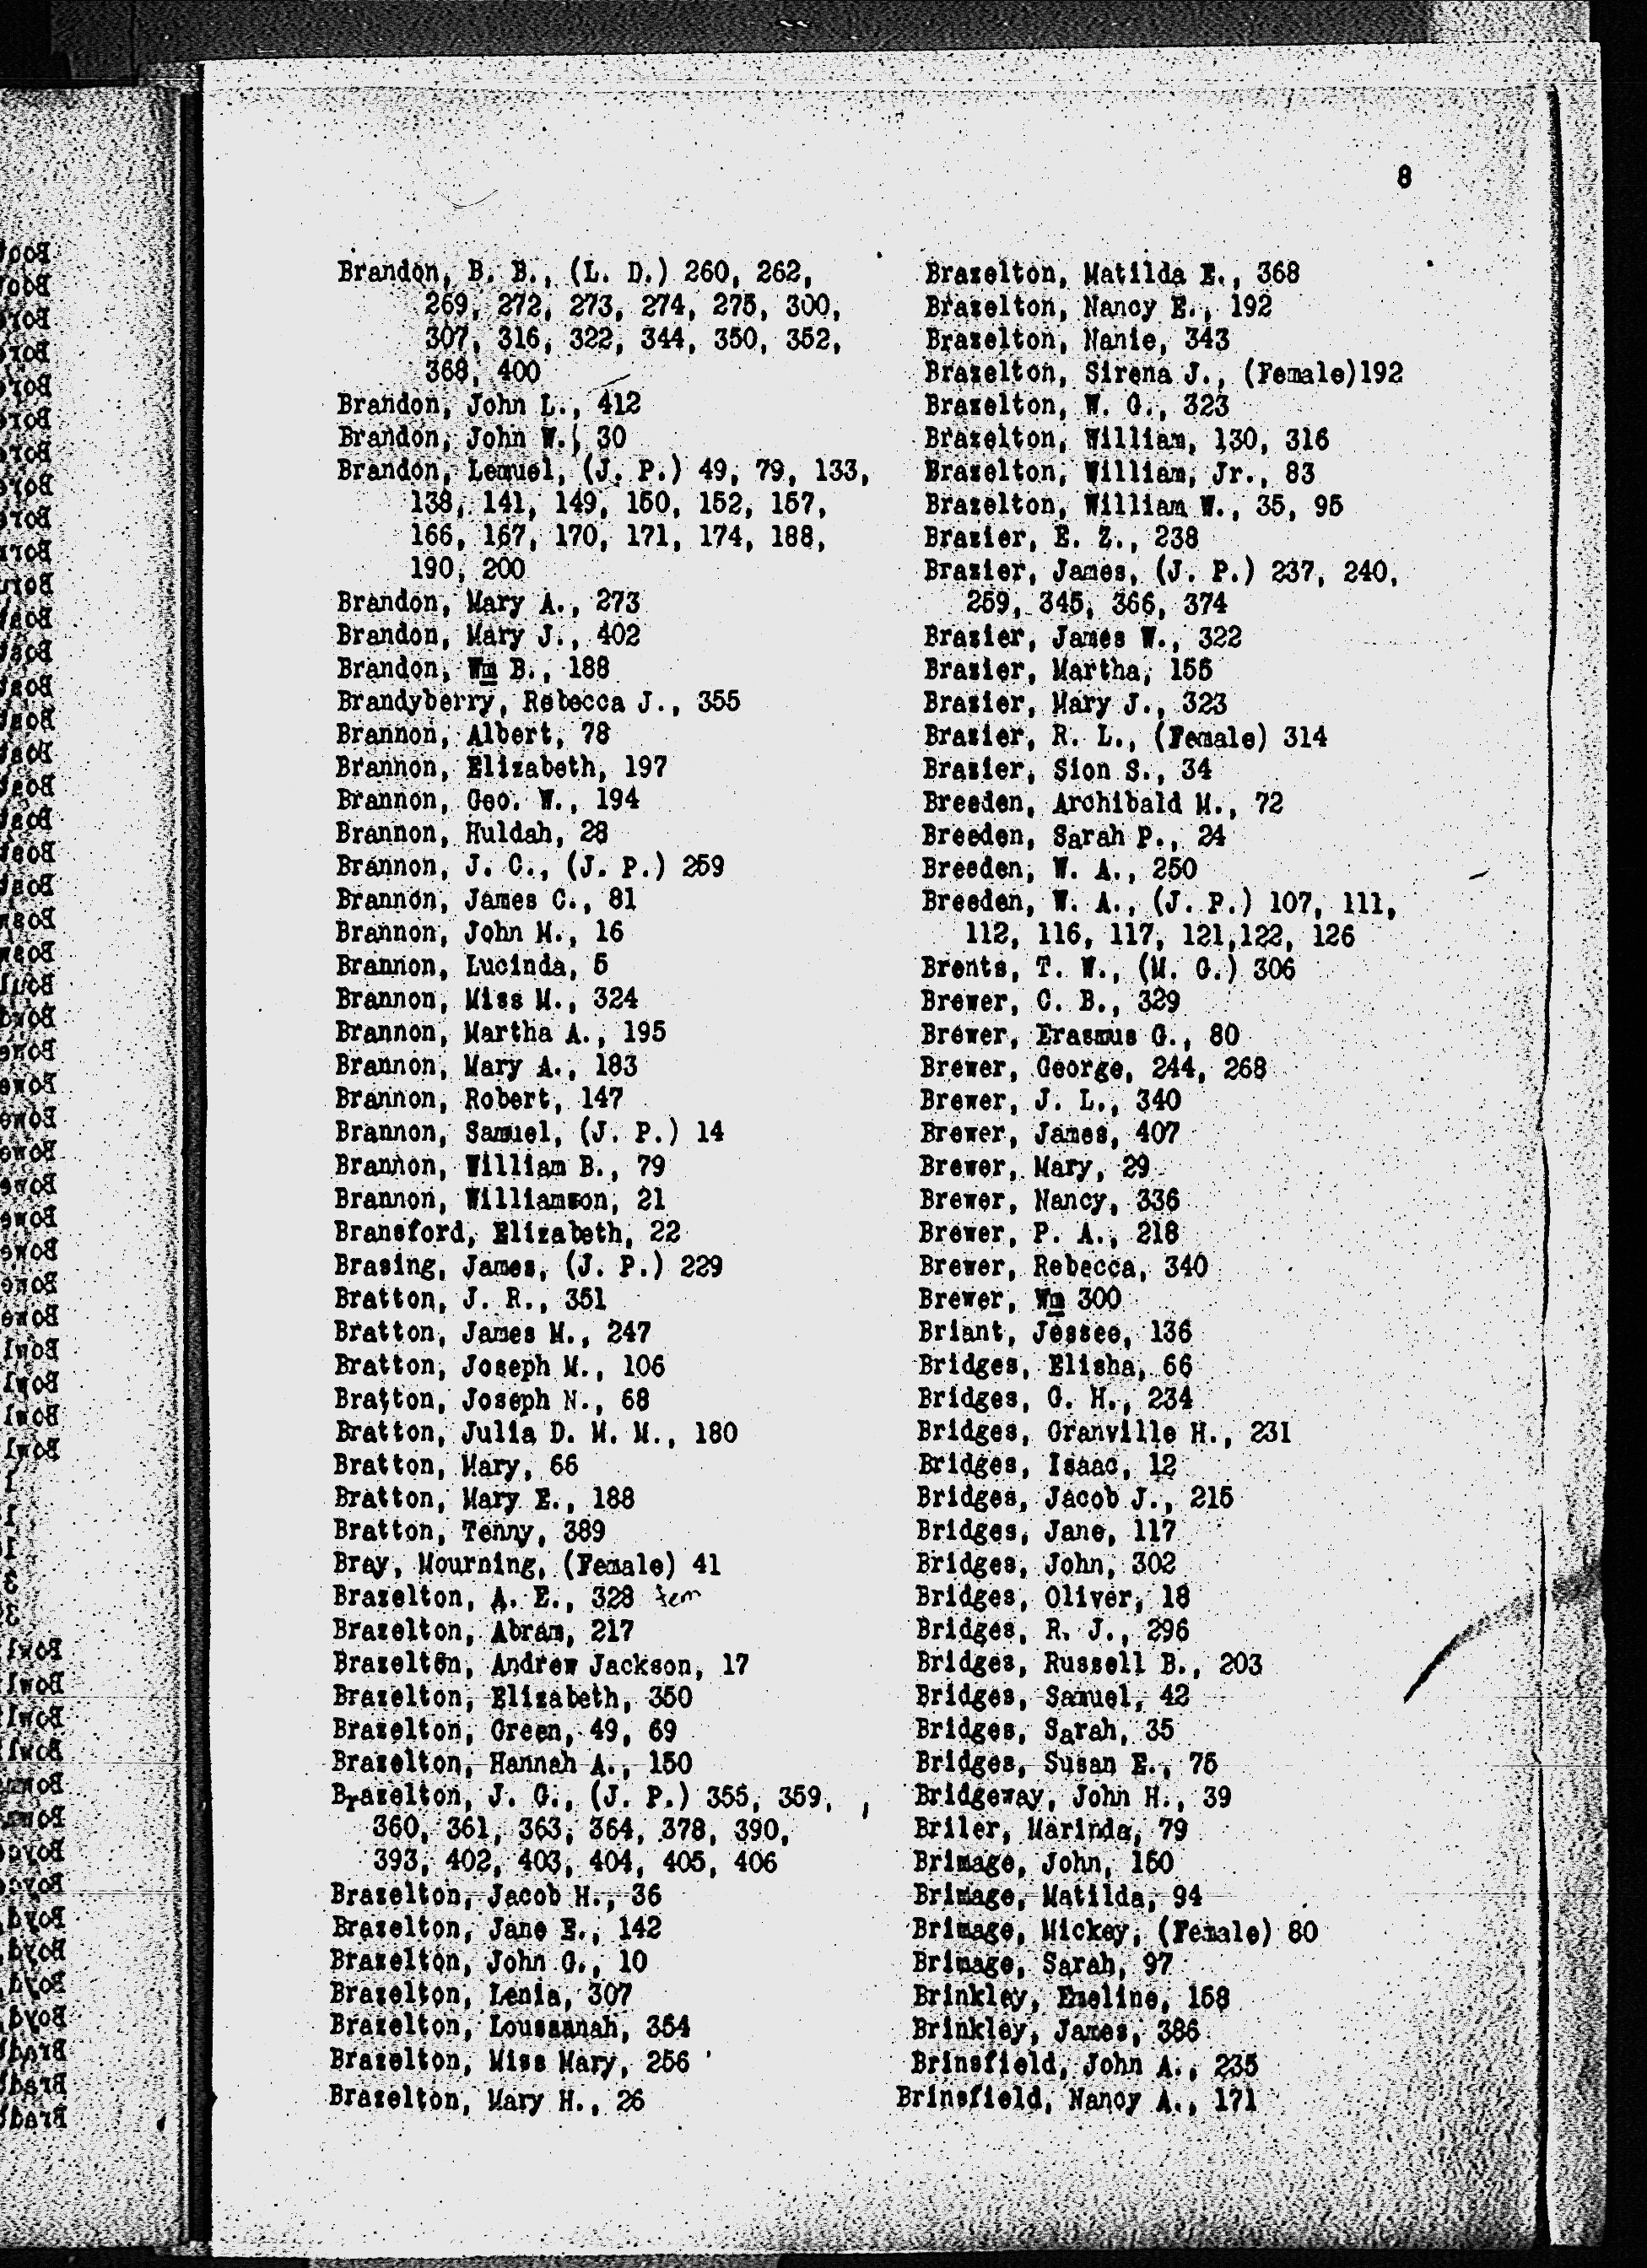 8
Brandon, B. B., (L. D.) 260, 262,
269, 272, 273, 274, 275, 300,
307, 316, 322, 344, 350, 352,
368, 400
Brandon, John L., 412
Brandon, John W., 30
Brandon, Lemuel, (J. P.) 49, 79, 133,
138, 141, 149, 150, 152, 157,
166, 167, 170, 171, 174, 188,
190, 200
Brandon, Mary A., 273
Brandon, Mary J., 402
Brandon, Wm B., 188
Brandyberry, Rebecca J., 355
Brannon, Albert, 78
Brannon, Elizabeth, 197
Brannon, Geo. W., 194
Brannon, Huldah, 28
Brannon, J. C., (J. P.) 259
Brannon, James C., 81
Brannon, John M., 16
Brannon, Lucinda, 5
Brannon, Miss M., 324
Brannon, Martha A., 195
Brannon, Mary A., 183
Brannon, Robert, 147
Brannon, Samuel, (J. P.) 14
Brannon, William B., 79
Brannon, Williamson, 21
Bransford, Elizabeth, 22
Brasing, James, (J. P.) 229
Bratton, J. R., 351
Bratton, James M., 247
Bratton, Joseph M., 106
Bratton, Joseph N., 68
Bratton, Julia D. M. M., 180
Bratton, Mary, 66
Bratton, Mary E., 188
Bratton, Tenny, 389
Bray, Mourning, (Female) 41
Brazelton, A. E., 328 fem
Brazelton, Abram, 217
Brazelton, Andrew Jackson, 17
Brazelton, Elizabeth, 350
Brazelton, Green, 49, 69
Brazelton, Hannah A., 150
Brazelton, J. G., (J. P.) 355, 359,
360, 361, 363, 364, 378, 390,
393, 402, 403, 404, 405, 406
Brazelton, Jacob H., 36
Brazelton, Jane E., 142
Brazelton, John G., 10
Brazelton, Lenia, 307
Brazelton, Loussanah, 354
Brazelton, Miss Mary, 256
Brazelton, Mary H., 26
Brazelton, Matilda E., 368
Brazelton, Nancy E., 192
Brazelton, Nanie, 343
Brazelton, Sirena J., (Female)192
Brazelton, W. G., 323
Brazelton, William, 130, 316
Brazelton, William, Jr., 83
Brazelton, William W., 35, 95
Brazier, E. Z., 238
Brazier, James, (J. P.) 237, 240,
259, 345, 366, 374
Brazier, James W., 322
Brazier, Martha, 155
Brazier, Mary J., 323
Brazier, R. L., (Female) 314
Brazier, Sion S., 34
Breeden, Archibald M., 72
Breeden, Sarah P., 24
Breeden, W. A., 250
Breeden, W. A., (J. P.) 107, 111,
112, 116, 117, 121,122, 126
Brents, T. W., (M. G.) 306
Brewer, C. B., 329
Brewer, Erasmus G., 80
Brewer, George, 244, 268
Brewer, J. L., 340
Brewer, James, 407
Brewer, Mary, 29
Brewer, Nancy, 336
Brewer, P. A., 218
Brewer, Rebecca, 340
Brewer, Wm 300
Briant, Jessee, 136
Bridges, Elisha, 66
Bridges, G. H., 234
Bridges, Granville H., 231
Bridges, Isaac, 12
Bridges, Jacob J., 215
Bridges, Jane, 117
Bridges, John, 302
Bridges, Oliver, 18
Bridges, R. J., 296
Bridges, Russell B., 203
Bridges, Samuel, 42
Bridges, Sarah, 35
Bridges, Susan E., 75
Bridgeway, John H., 39
Briler, Marinda, 79
Brimage, John, 150
Brimage, Matilda, 94
Brimage, Mickey, (Female) 80
Brimage, Sarah, 97
Brinkley, Emeline, 158
Brinkley, James, 386
Brinsfield, John A., 235
Brinsfield, Nancy A., 171